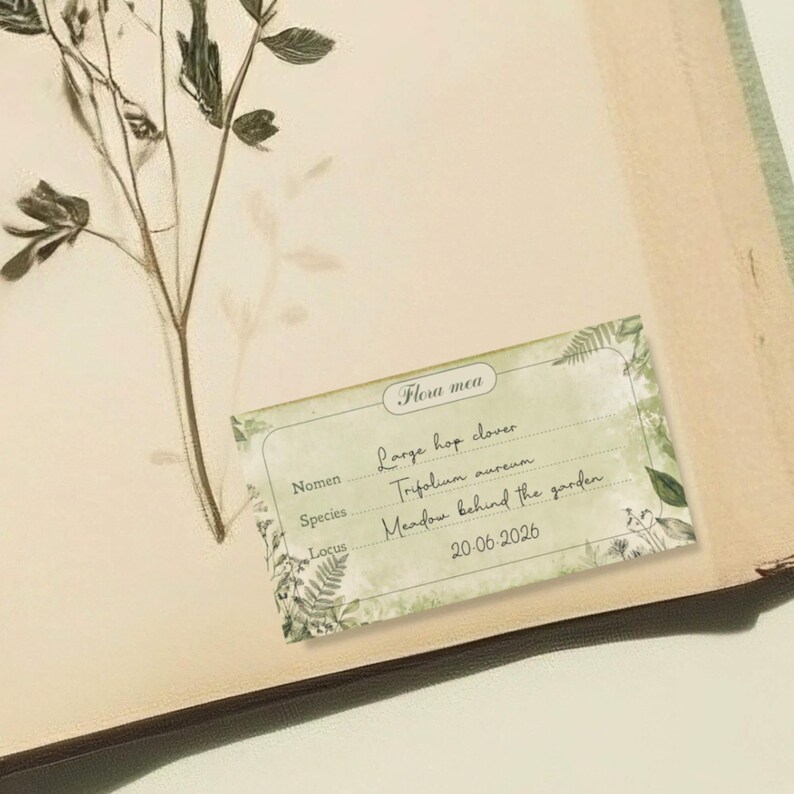 Flora mea
Nomen Large hop clover
Species Trifolium aureum
Locus Meadow behind the garden
20.06.2026